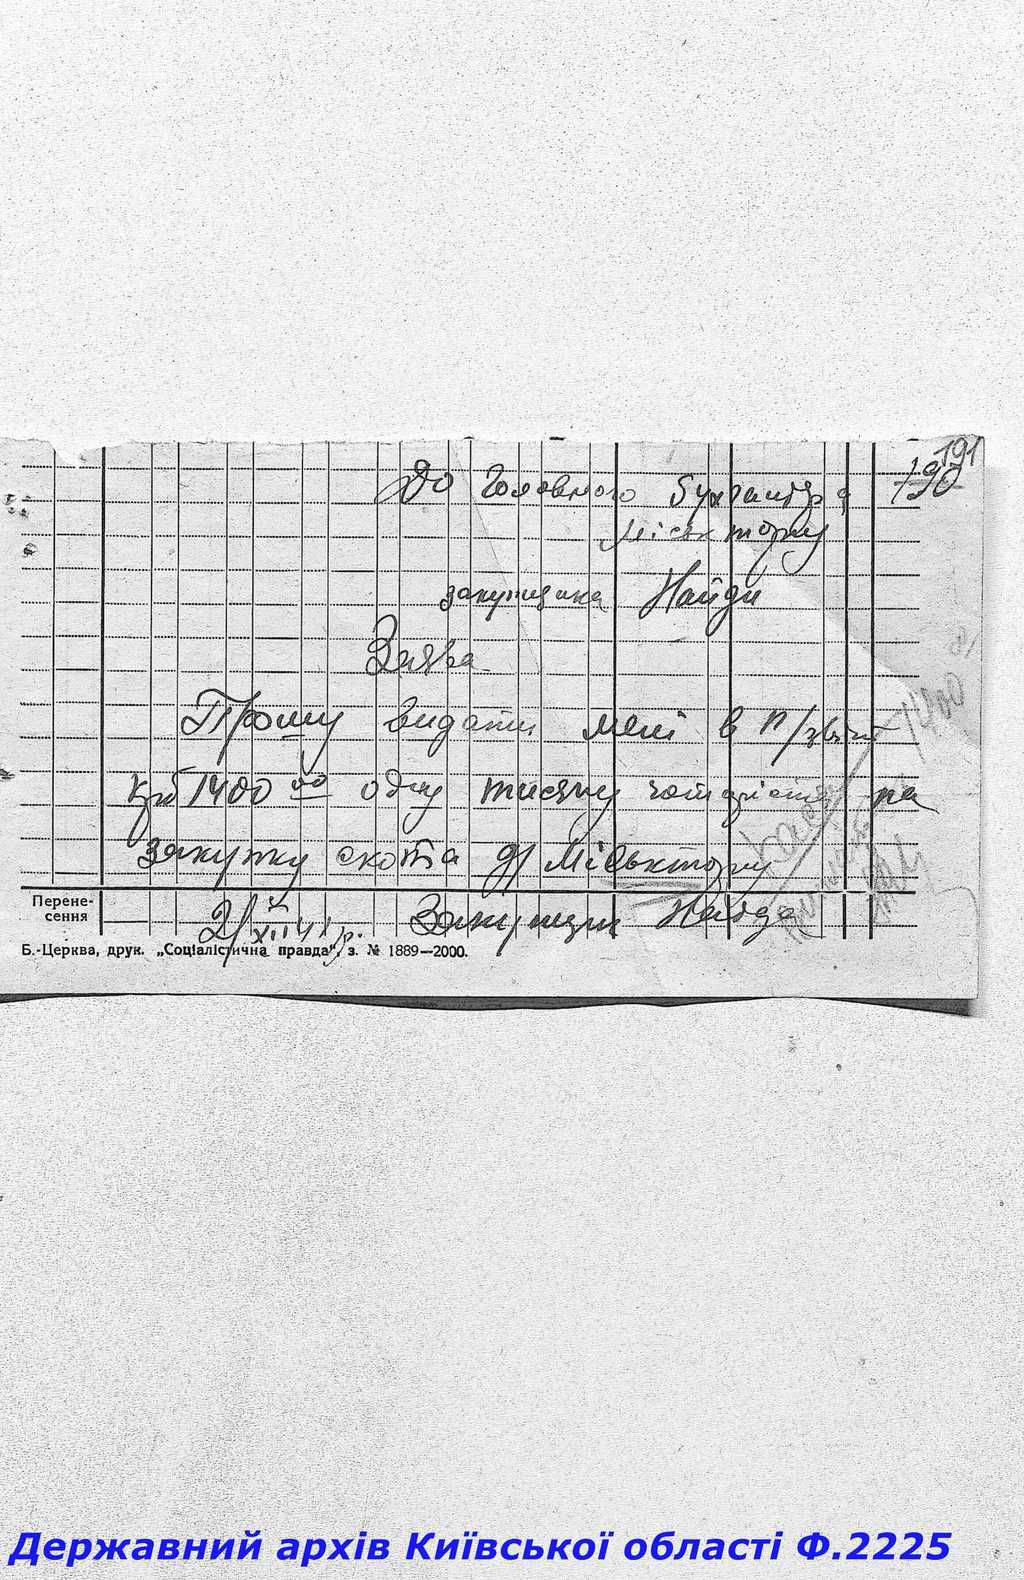 191
190
До Головного Бухгалтера
Міськторгу
закупщика Найди
Заява
Прошу видати мені в п/звіт
крб 1400 00 одну тисячу чотириста на
закупку скота д/ Міськторгу
1400
Перене-
сення
2/XII 41 р. Закупщик Найда
Б.-Церква, друк. „Соціалістична правда", з. № 1889—2000.
Державний архів Київської області Ф.2225